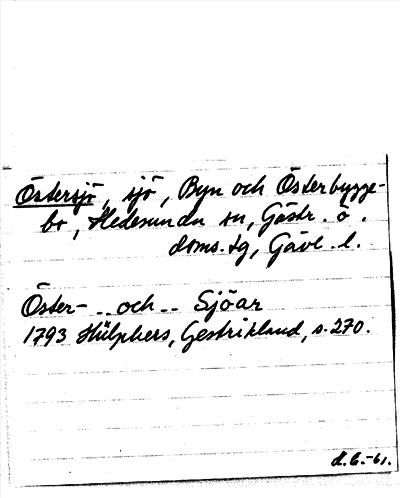 Östersjö, sjö, Byn och Österbygge-
bo, Hedesunda sn, Gästr. ö.
doms.sg, Gävl. l.
Öster- .. och .. Sjöar
1793 Hülphers, Gestrikland, s. 270.
d. b. -61.